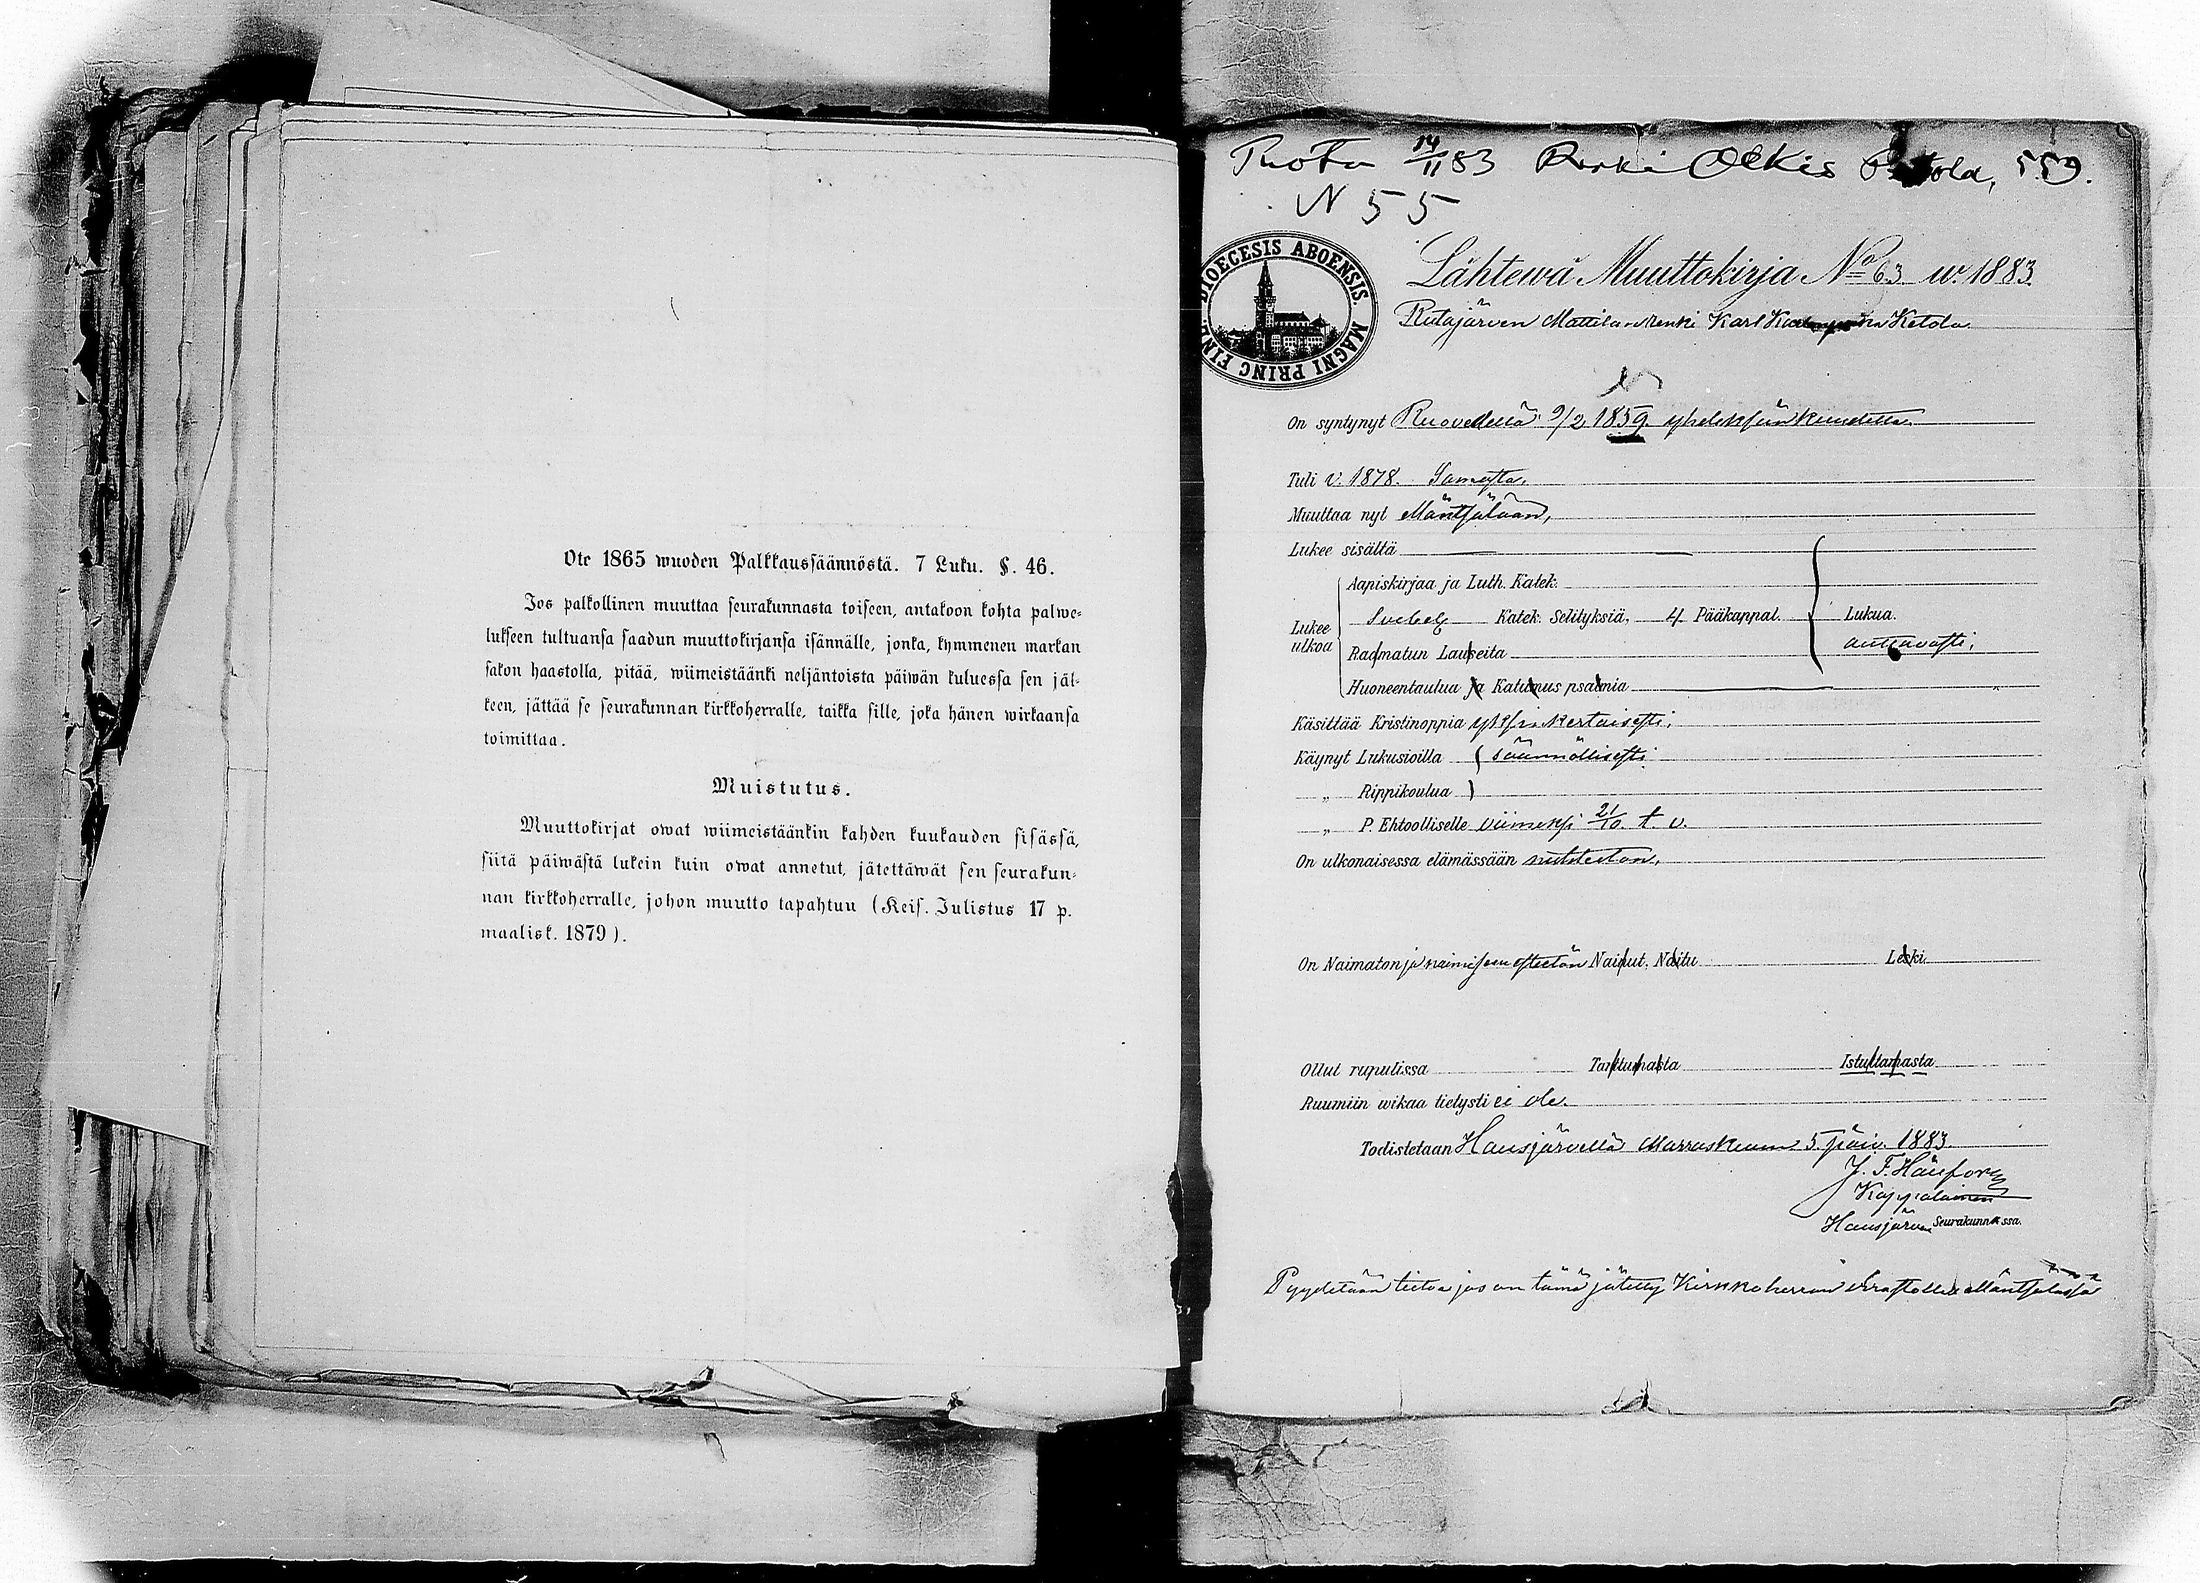 Ote 1865 wuoden Palkkaussäännöstä. 7 Luku. §. 46.
Jos palkollinen muuttaa seurakunnasta toiseen, antakoon kohta palwe-
lukseen tultuansa saadun muuttokirjansa isännälle, jonka, kymmenen markan
sakon haastolla, pitää, wiimeistäänki neljäntoista päiwän kuluessa sen jäl-
keen, jättää se seurakunnan kirkkoherralle, taikka sille, joka hänen wirkaansa
toimittaa.
Muistutus.
Muuttokirjat owat wiimeistäänkin kahden kuukauden sisässä,
siitä päiwästä lukein kuin owat annetut, jätettäwät sen seurakun-
nan kirkkoherralle, johon muutto tapahtuu (Keis. Julistus 17 p.
maalisk. 1879).
14/11 83 559.
N 55
DIOECESIS ABOENSIS. MAGNI PRINC. FINL.
Lähtewä Muuttokirja No 63 w. 1883
Rutajärven Mattila renki Karl Ketola
On syntynyt Ruovedellä 9/2 1859. yhdeksän kuudetta
Tuli v. 1878. Somerolta.
Muuttaa nyt Mäntsälään,
Lukee sisältä
Aapiskirjaa ja Luth. Katek.
Lukee ulkoa
Svebel Katek. Selityksiä, 4 Pääkappal. Lukua.
Raamatun Lauseita auttavasti,
Huoneentaulua ja Katumus psalmia
Käsittää Kristinoppia yksinkertaisesti,
Käynyt Lukusioilla säännöllisesti
„ Rippikoulua
„ P. Ehtoolliselle viimeksi 21/10 t. v.
On ulkonaisessa elämässään nuhteeton,
On Naimaton ja naimisen esteetön Nainut. Naitu Leski
Ollut rupulissa Tarttumasta Istuttamasta
Ruumiin wikaa tietysti ei ole.
Todistetaan Hausjärvellä Marraskuun 5. päiv. 1883
Kappalainen
Hausjärven Seurakunnassa.
Pyydetään tietoa jos on tämä jätetty Kirkkoherran virastolle Mäntsälässä